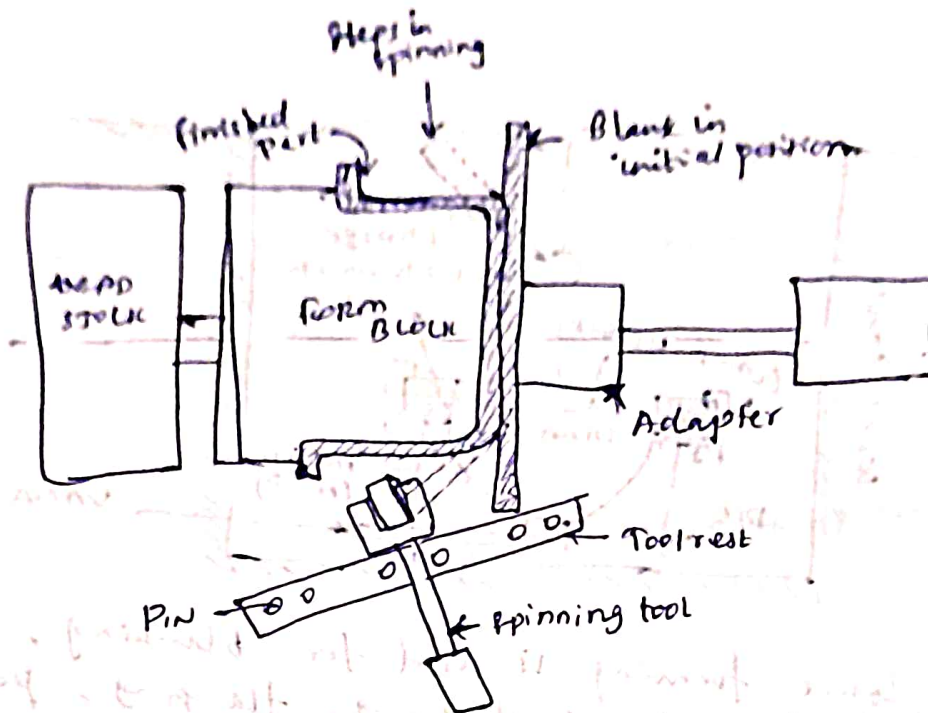 Steps in
spinning
finished
part
Blank in
initial position
STOCK
FORM
BLOCK
Adapter
Tool rest
PIN
spinning tool